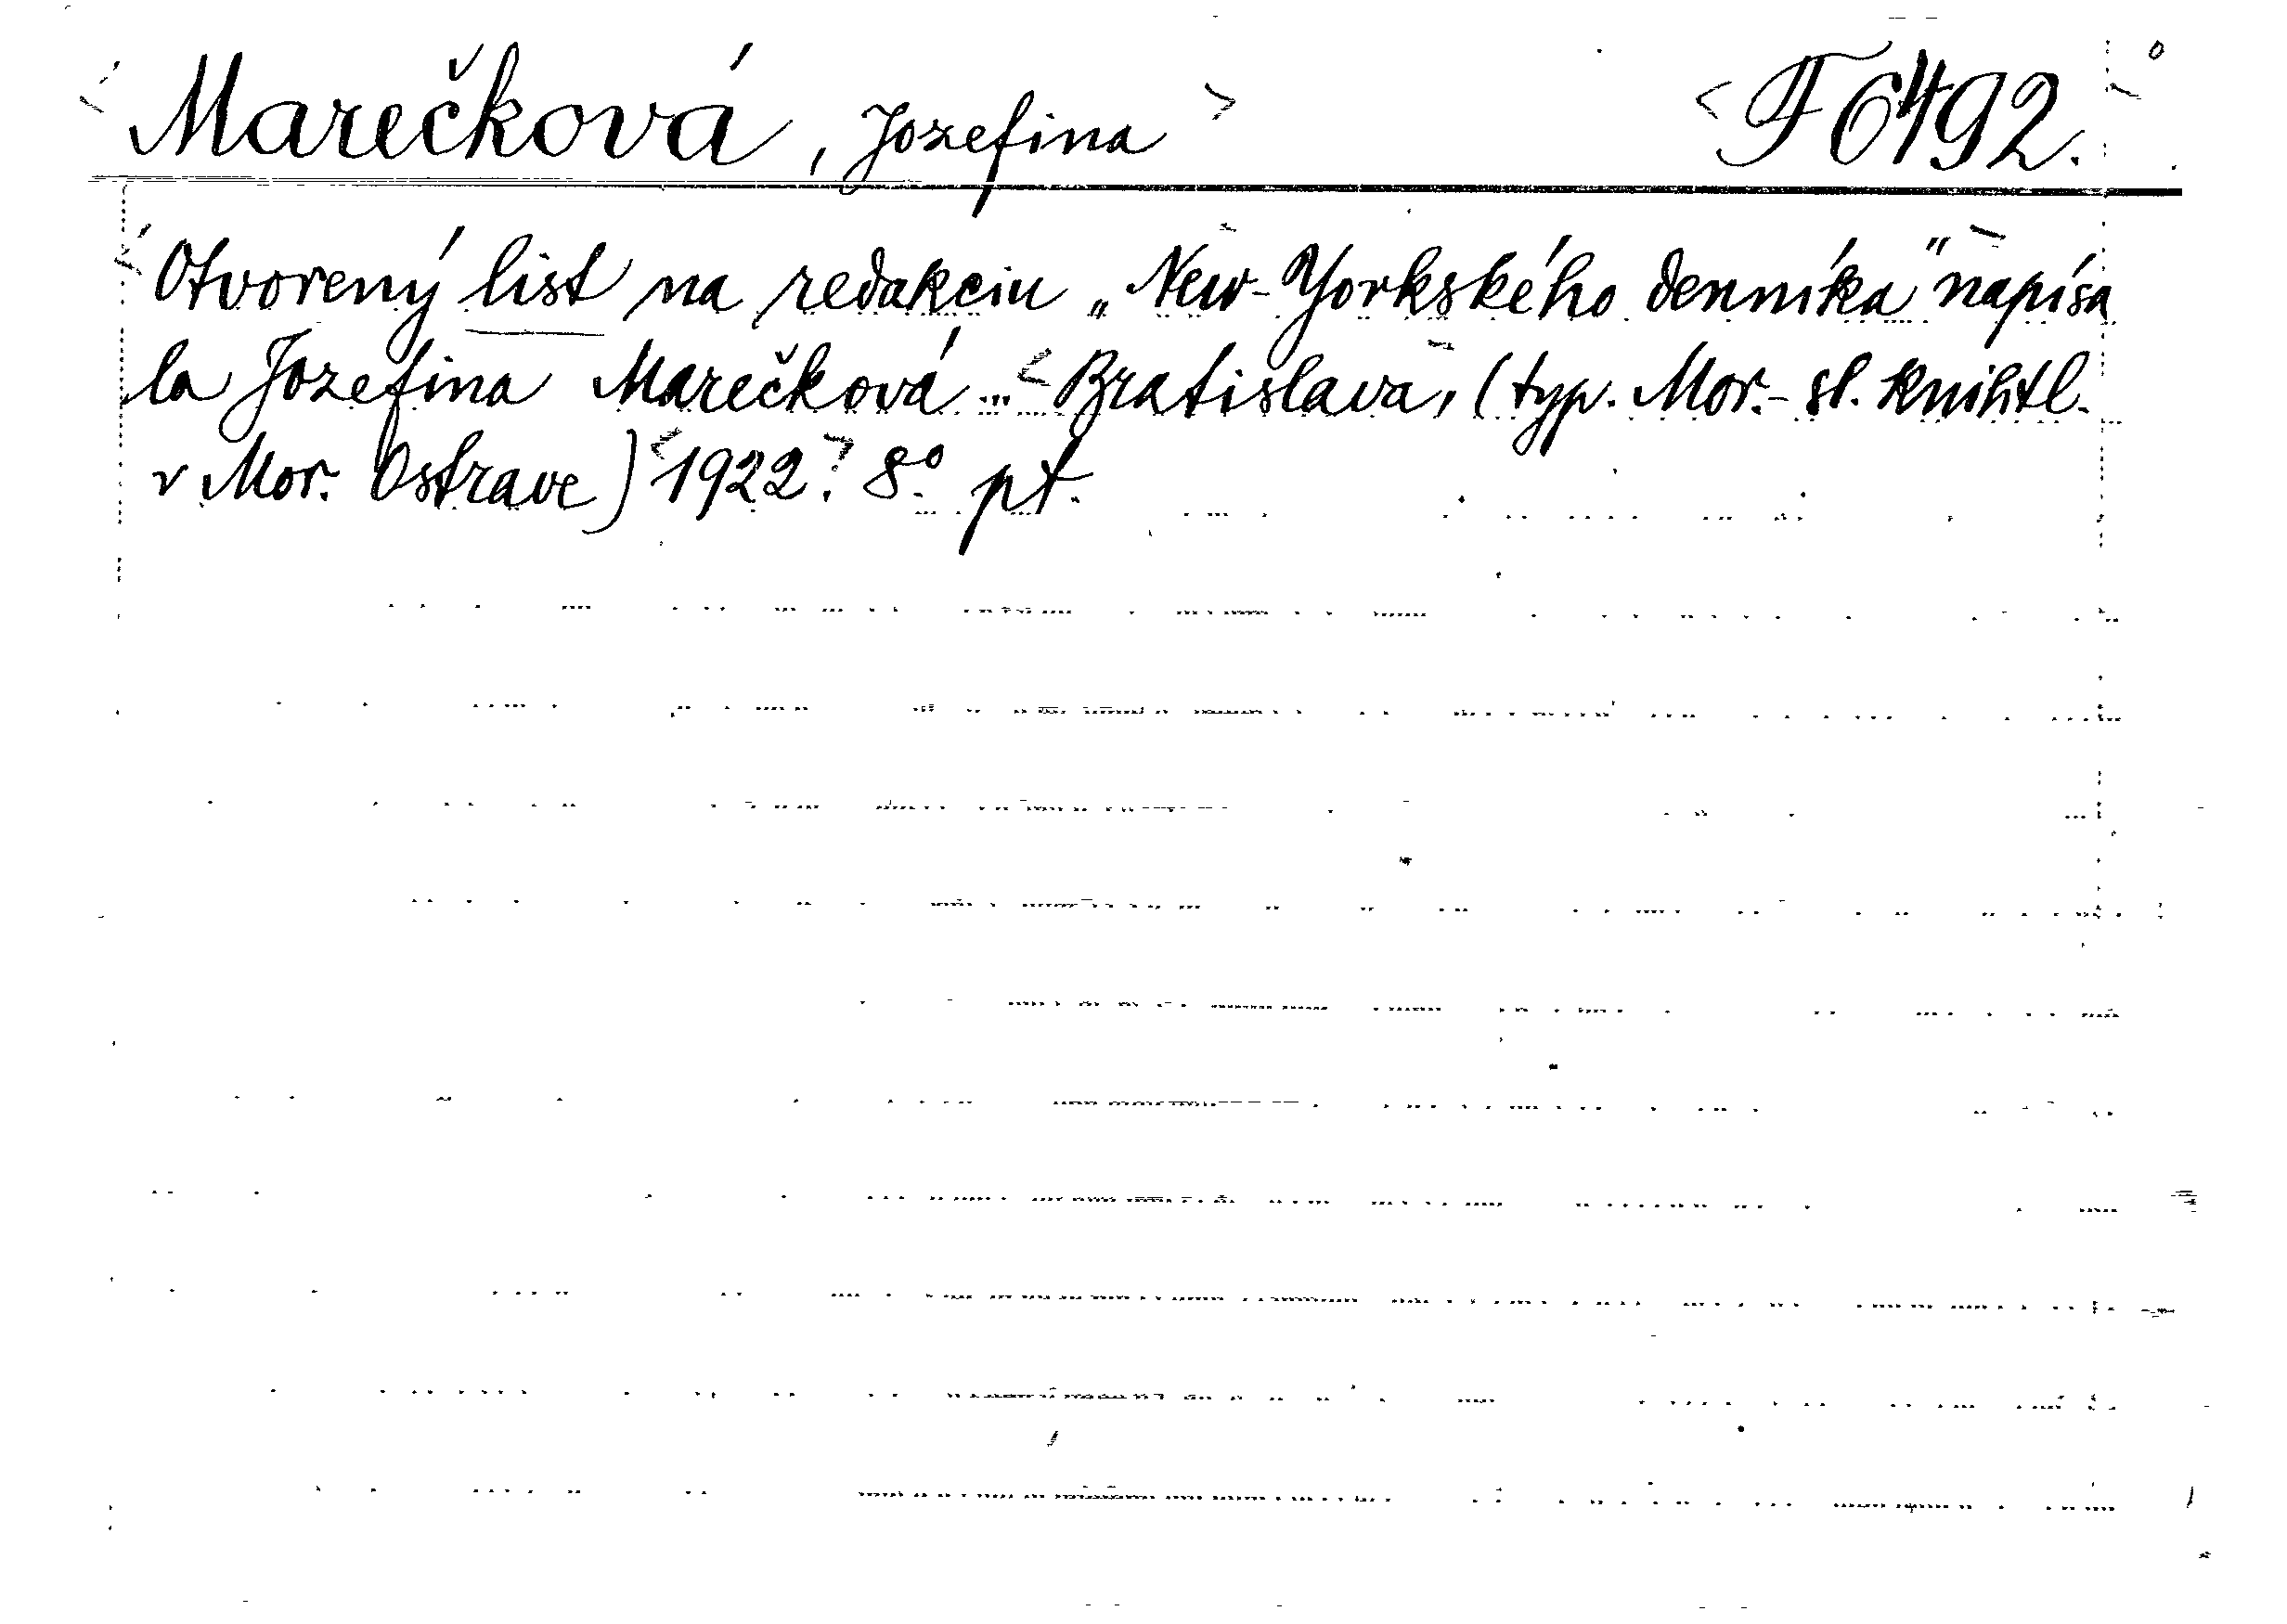 Marečková, Jozefina F 6492.
Otvorený list na redakciu „New-Yorkského denníka" napísa
la Jozefina Marečková ... Bratislava, (typ. Mor.-sl. knihtl.
v Mor. Ostrave) 1922. 8° pt.